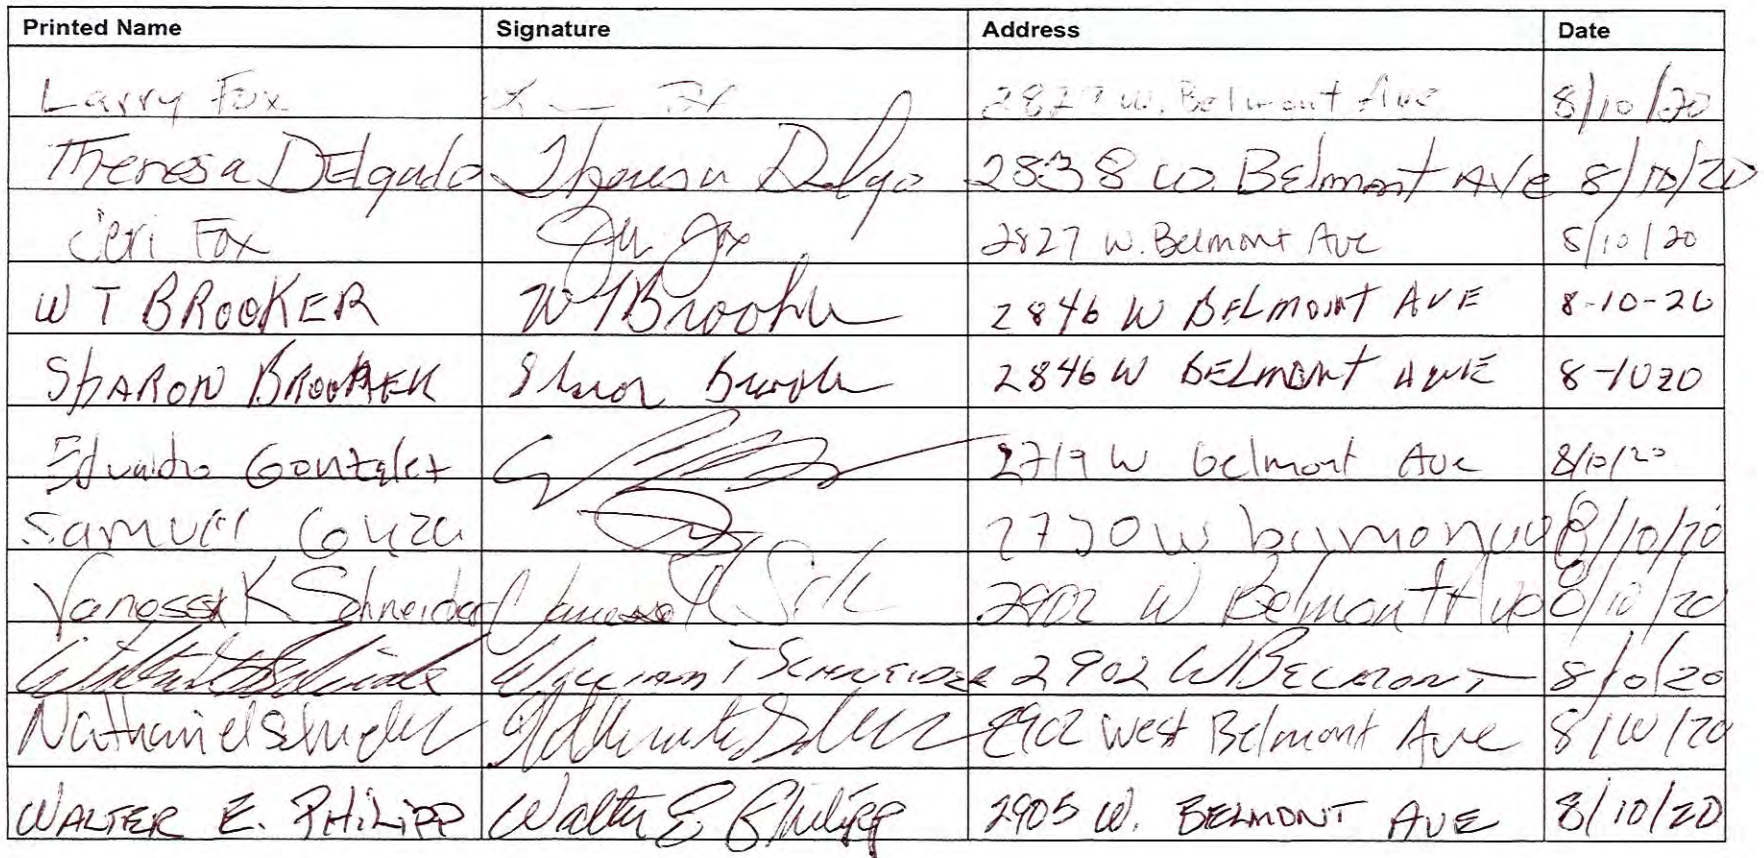 Printed Name Signature Address Date
Larry Fox 2827 W. Belmont Ave 8/10/20
Theresa DElgado Theresa Delgo 2838 W. BElmont AVe 8/10/20
Jeri Fox Jeri Fox 2827 W. Belmont Ave 8/10/20
W T BROOKER W T Brooker 2846 W BELMONT AVE 8-10-20
SHARON BROOKER Sharon Brooker 2846 W BELMONT AVE 8-1020
Eduardo Gonzalez 2719 W belmont Ave 8/10/20
Samuel 2730 W 8/10/20
Vanessa K Schneider Vanessa K 2902 W Belmont Ave 8/10/20
William T SCHNEIDER 2902 W BELMONT 8/10/20
Nathaniel 2902 West Belmont Ave 8/10/20
WALTER E. PHILIPP Walter E Philipp 2905 W. BELMONT AVE 8/10/20